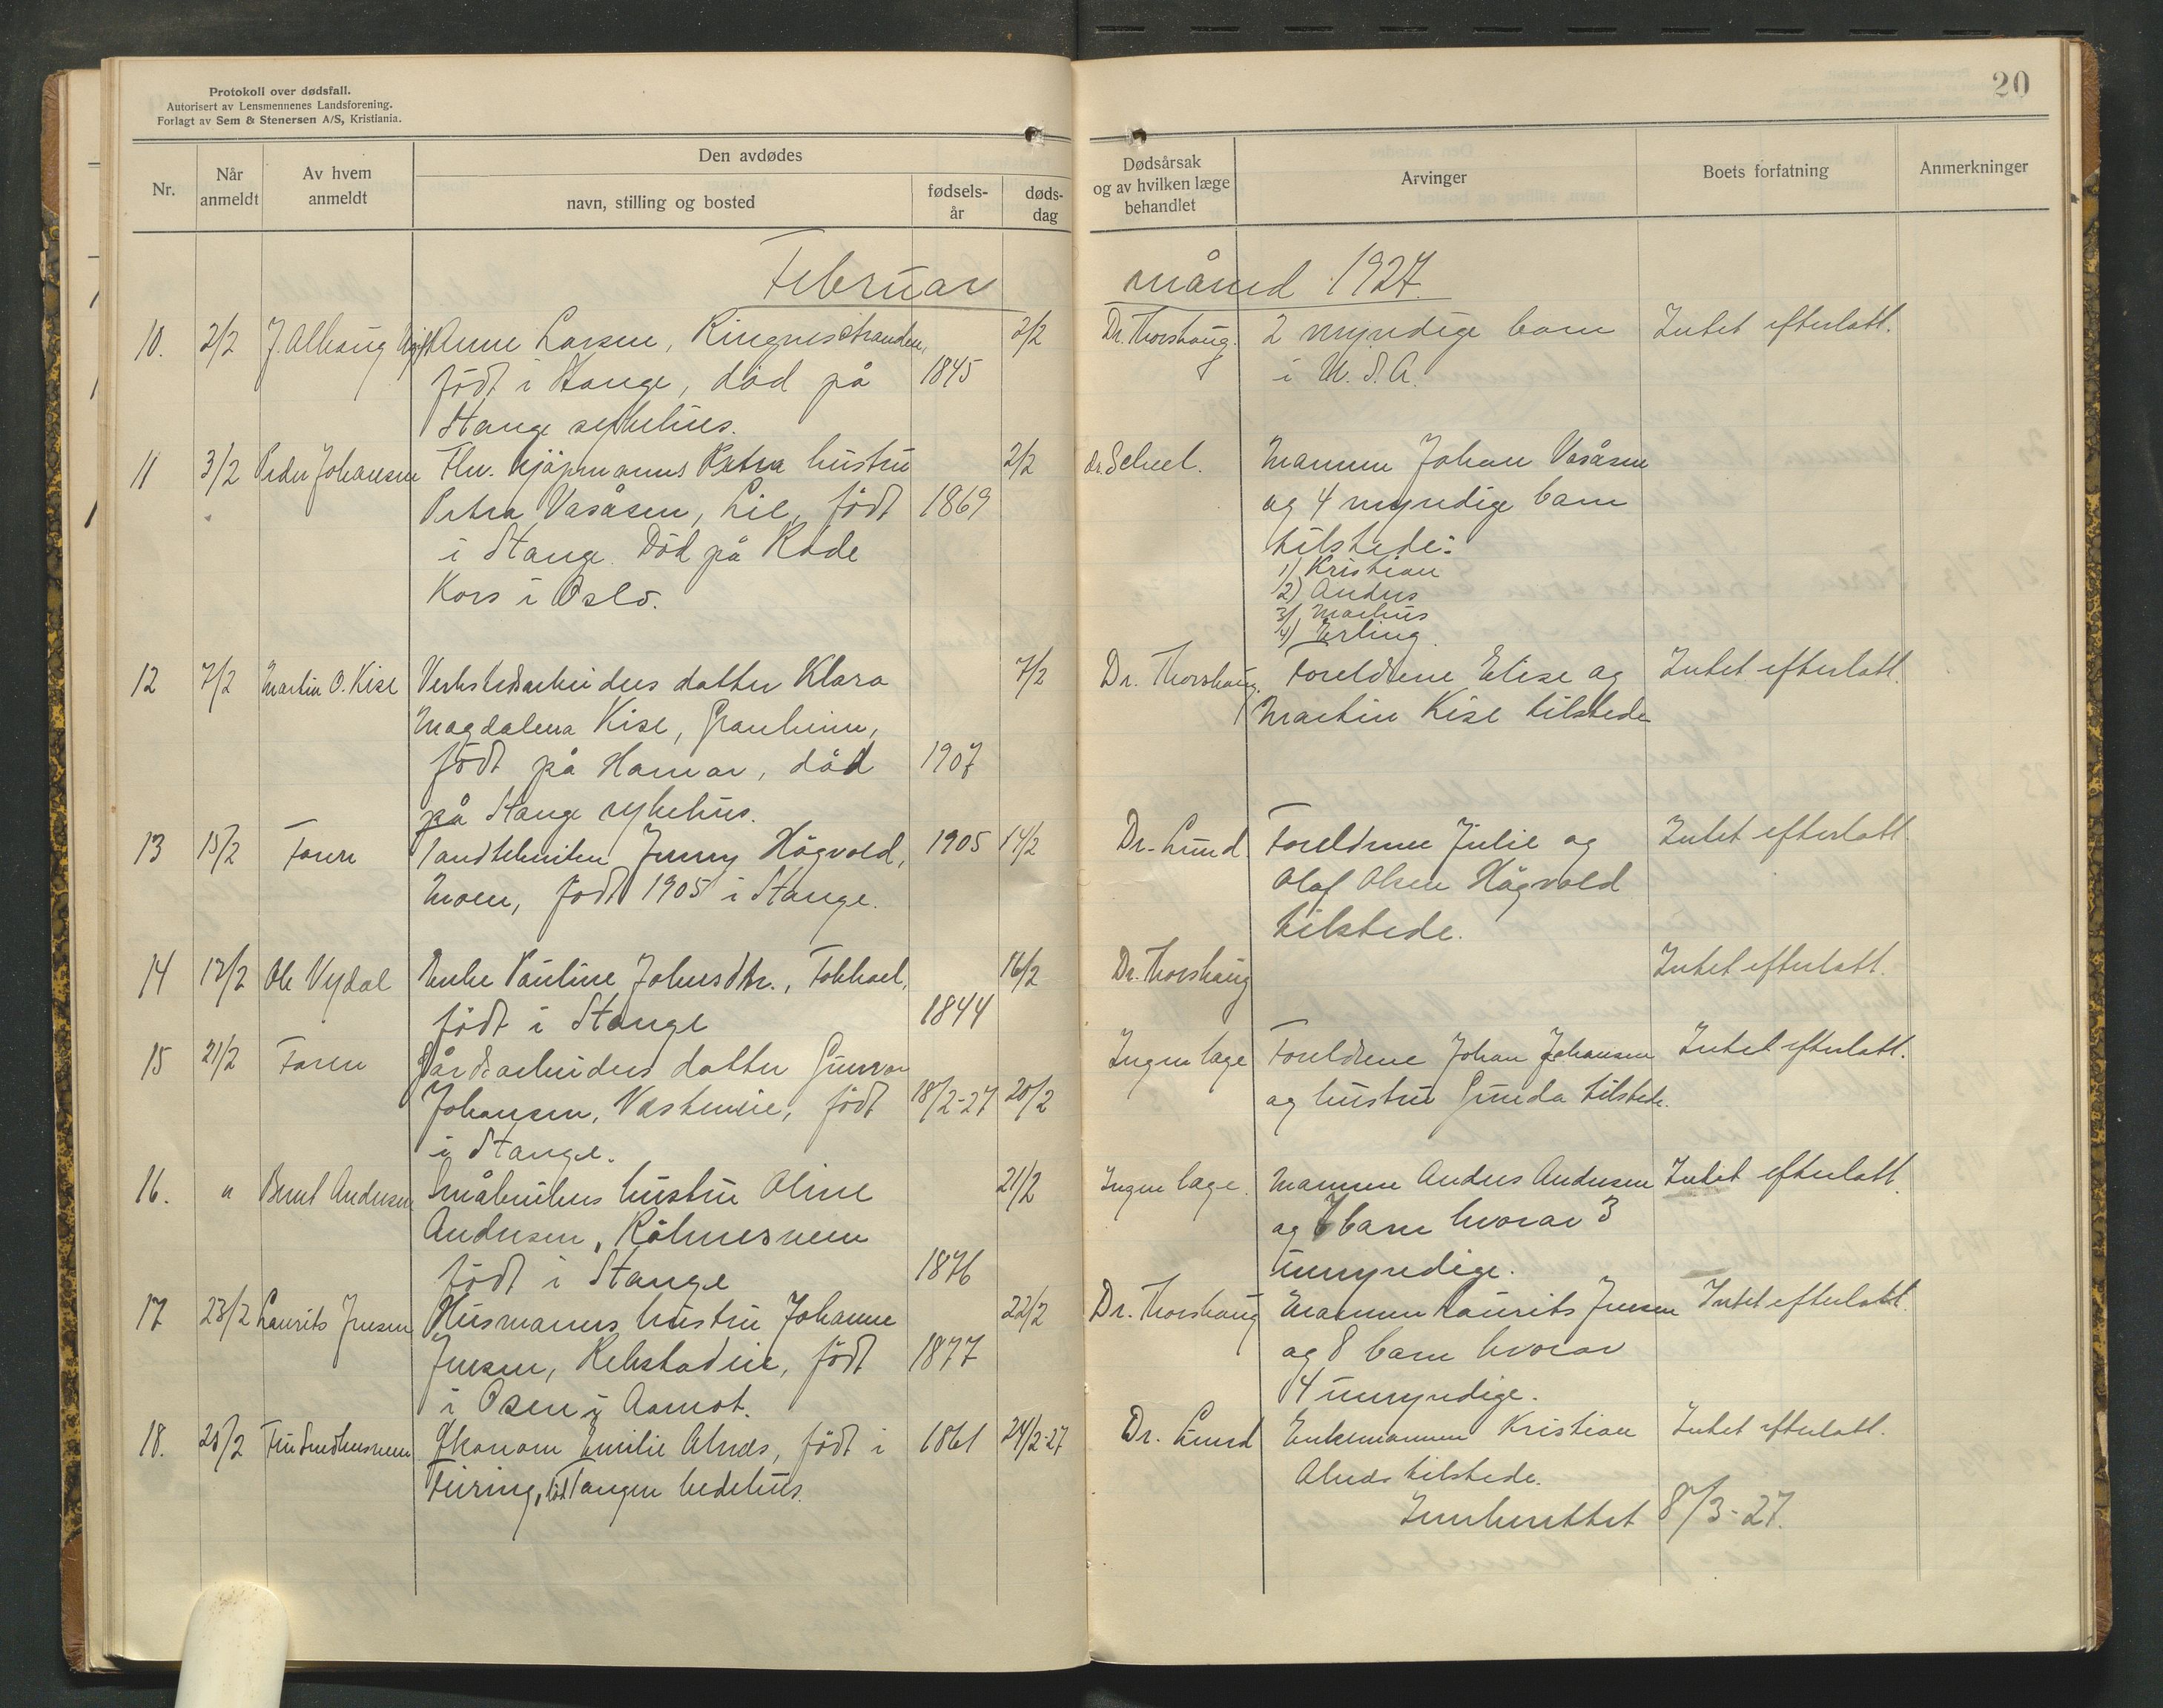 Protokoll over dødsfall.
Autorisert av Lensmennenes Landsforening.
Forlagt av Sem & Stenersen A/S, Kristiania.
20
Nr.
Når anmeldt
Av hvem anmeldt
Den avdødes
navn, stilling og bosted
fødsels-år
døds-dag
Dødsårsak og av hvilken læge behandlet
Arvinger
Boets forfatning
Anmerkninger
Februar måned 1927.
10. 2/2 J. Alhaug Anne Larsen, Ringnesstranden, 2/2 Dr. Thorshaug. 2 myndige barn Intet efterlatt.
født i Stange, död på 1845 i U.S.A.
Stange sykehus.
11 3/2 Peder Johansen Fhv. kjöpmanns Petra hustru 2/2 dr. Scheel. Mannen Johan Vasåsen
Petra Vasåsen, Lil, födt 1869 og 4 myndige barn
i Stange. Död på Röde tilstede:
Kors i Oslo. 1) Kristian
2) Anders
3) Markus
4) Erling.
12 7/2 Martin O. Kise Verkstedarbeiders datter Klara 7/2 Dr. Thorshaug. Foreldrene Elise og Intet efterlatt.
Magdalena Kise, Granheim, Martin Kise tilstede
födt på Hamar, död 1907
på Stange sykehus.
13 15/2 Faren Tandtekniker Jenny Högvold, 1905 14/2 Dr. Lund. Foreldrene Julie og Intet efterlatt
Moen, födt 1905 i Stange. Olaf Olsen Högvold
tilstede.
14 17/2 Ole Vydal Enke Pauline Johnsdtr., Tokhoel, 16/2 Dr. Thorshaug Intet efterlatt.
födt i Stange 1844
15 21/2 Faren Gårdsarbeiders datter Gunvor Ingen læge Foreldrene Johan Johansen Intet efterlatt.
Johansen, Vasteneie, födt 18/2-27 20/2 og hustru Gunda tilstede.
i Stange.
16. " Bernt Andersen Småbrukers hustru Oline 21/2 Ingen læge. Mannen Anders Andersen Intet efterlatt.
Andersen, og barn hvorav 3
födt i Stange 1876 umyndige.
17 23/2 Laurits Jensen Husmanns hustru Johanne 22/2 Dr. Thorshaug Mannen Laurits Jensen Intet efterlatt.
Jensen, Rekstadeie, födt 1877 og 8 barn hvorav
i Osen i Aamot. 4 umyndige.
18. 25/2 Økonom Emilie Alnæs, födt i 1861 24/2-27 Dr. Lund Enkemannen Kristian Intet efterlatt.
Feiring, Tangen bedehus. Alnæs tilstede.
Innberettet 8/3-27.